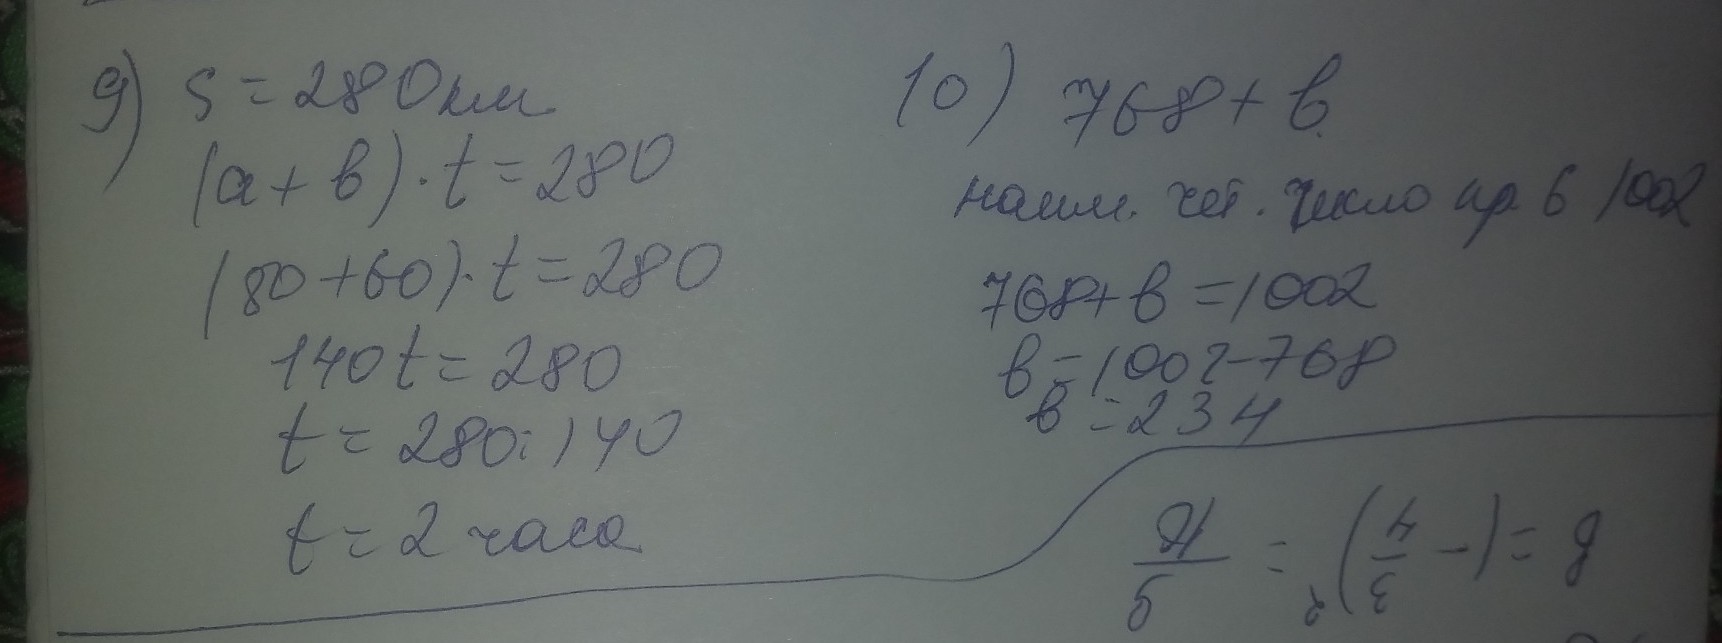 9) S = 280км
(a + b) · t = 280
(80 + 60) · t = 280
140t = 280
t = 280 : 140
t = 2 часа
10) 768 + b
наим. чёт. число пр. b 1002
768 + b = 1002
b = 1002 - 768
b = 234